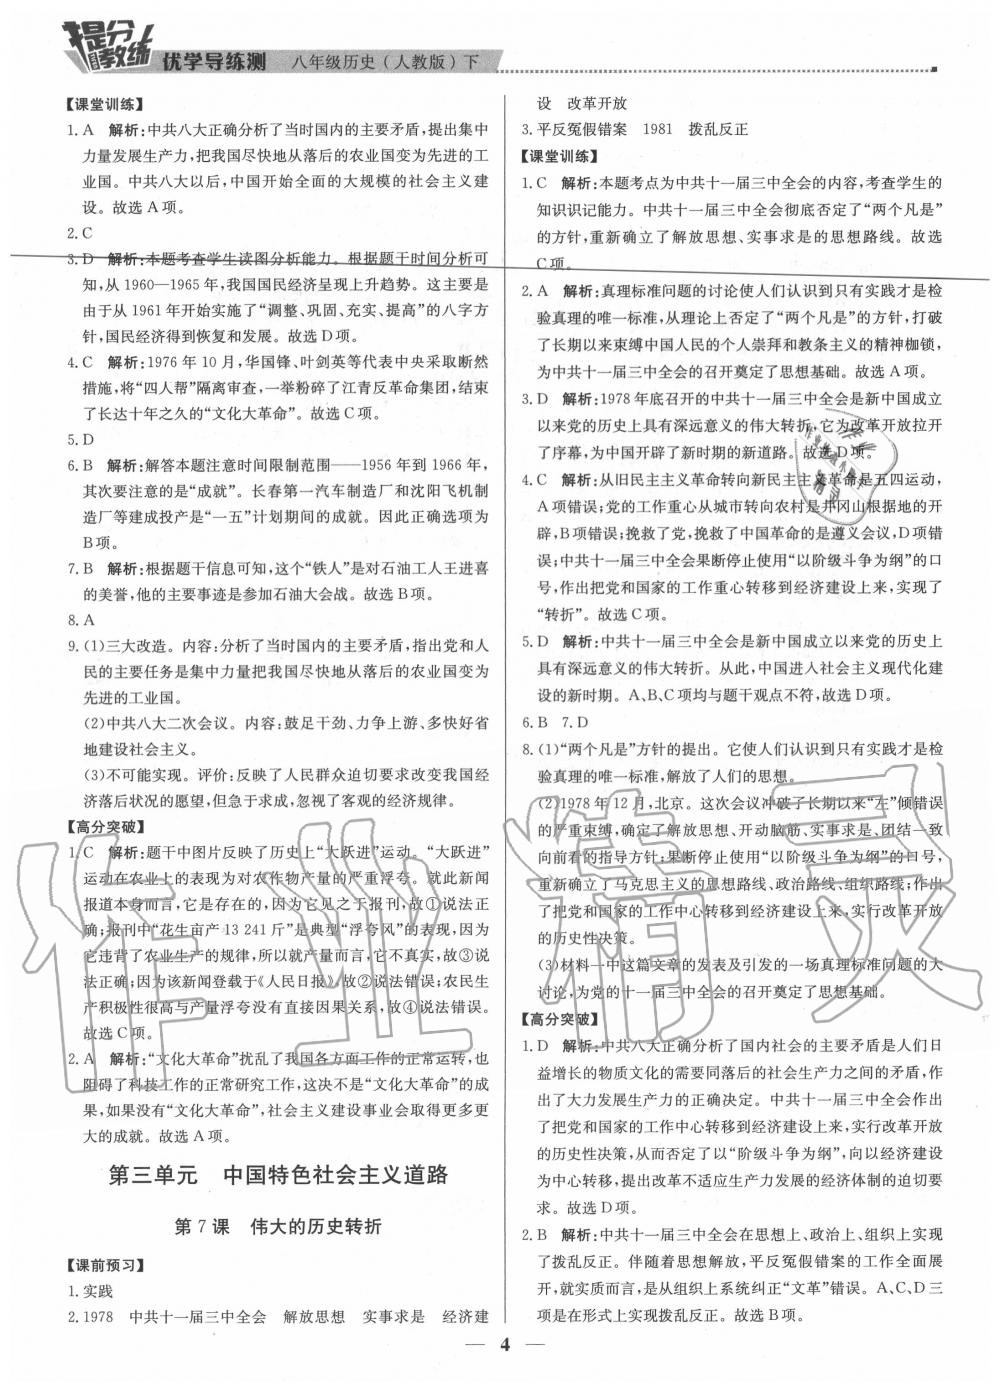 提分教练
优学导练测 八年级历史(人教版)下
【课堂训练】
1. A 解析:中共八大正确分析了当时国内的主要矛盾,提出集中
力量发展生产力,把我国尽快地从落后的农业国变为先进的工
业国。中共八大以后,中国开始全面的大规模的社会主义建
设。故选A项。
2. C
3. D 解析:本题考查学生读图分析能力。根据题干时间分析可
知,从1960—1965年,我国国民经济呈现上升趋势。这主要是
由于从1961年开始实施了“调整、巩固、充实、提高”的八字方
针,国民经济得到恢复和发展。故选D项。
4. C 解析:1976年10月,华国锋、叶剑英等代表中央采取断然
措施,将“四人帮”隔离审查,一举粉碎了江青反革命集团,结束
了长达十年之久的“文化大革命”。故选C项。
5. D
6. B 解析:解答本题注意时间限制范围——1956年到1966年,
其次要注意的是“成就”。长春第一汽车制造厂和沈阳飞机制
造厂等建成投产是“一五”计划期间的成就。因此正确选项为
B项。
7. B 解析:根据题干信息可知,这个“铁人”是对石油工人王进喜
的美誉,他的主要事迹是参加石油大会战。故选B项。
8. A
9. (1)三大改造。内容:分析了当时国内的主要矛盾,指出党和人
民的主要任务是集中力量把我国尽快地从落后的农业国变为
先进的工业国。
(2)中共八大二次会议。内容:鼓足干劲、力争上游、多快好省
地建设社会主义。
(3)不可能实现。评价:反映了人民群众迫切要求改变我国经
济落后状况的愿望,但急于求成,忽视了客观的经济规律。
【高分突破】
1. C 解析:题干中图片反映了历史上“大跃进”运动。“大跃进”
运动在农业上的表现为对农作物产量的严重浮夸。就此新闻
报道本身而言,它是有价值的,因为它见之于报刊,故①说法正
确;报刊中“花生亩产13 241斤”是典型“浮夸风”的表现,因为
它违背了农业生产的规律,所以就产量而言,它不真实,故③说
法正确;因为该新闻登载于《人民日报》,故②说法错误;农民生
产积极性很高与产量浮夸没有直接因果关系,故④说法错误。
故选C项。
2. A 解析:“文化大革命”扰乱了我国各方面工作的正常运转,也
阻碍了科技工作的正常研究工作,这决不是“文化大革命”的成
果,如果没有“文化大革命”,社会主义建设事业会取得更多更
大的成就。故选A项。
第三单元 中国特色社会主义道路
第7课 伟大的历史转折
【课前预习】
1. 实践
2. 1978 中共十一届三中全会 解放思想 实事求是 经济建
设 改革开放
3. 平反冤假错案 1981 拨乱反正
【课堂训练】
1. C 解析:本题考点为中共十一届三中全会的内容,考查学生的
知识识记能力。中共十一届三中全会彻底否定了“两个凡是”
的方针,重新确立了解放思想、实事求是的思想路线。故选
C项。
2. A 解析:真理标准问题的讨论使人们认识到只有实践才是检
验真理的唯一标准,从理论上否定了“两个凡是”的方针,打破
了长期以来束缚中国人民的个人崇拜和教条主义的精神枷锁,
为中共十一届三中全会的召开奠定了思想基础。故选A项。
3. D 解析:1978年底召开的中共十一届三中全会是新中国成立
以来党的历史上具有深远意义的伟大转折,它为改革开放拉开
了序幕,为中国开辟了新时期的新道路。故选D项。
4. C 解析:从旧民主主义革命转向新民主主义革命是五四运动,
A项错误;党的工作重心从城市转向农村是井冈山根据地的开
辟,B项错误;挽救了党,挽救了中国革命的是遵义会议,D项错
误;中共十一届三中全会果断停止使用“以阶级斗争为纲”的口
号,作出把党和国家的工作重心转移到经济建设上来,实现了
“转折”。故选C项。
5. D 解析:中共十一届三中全会是新中国成立以来党的历史上
具有深远意义的伟大转折。从此,中国进入社会主义现代化建
设的新时期。A、B、C项均与题干观点不符,故选D项。
6. B 7. D
8. (1)“两个凡是”方针的提出。它使人们认识到只有实践是检
验真理的唯一标准,解放了人们的思想。
(2)1978年12月,北京。这次会议冲破了长期以来“左”倾错误
的严重束缚,确定了解放思想、开动脑筋、实事求是、团结一致
向前看的指导方针;果断停止使用“以阶级斗争为纲”的口号,
重新确立了马克思主义的思想路线、政治路线、组织路线;作出
了把党和国家的工作中心转移到经济建设上来,实行改革开放
的历史性决策。
(3)材料一中这篇文章的发表及引发的一场真理标准问题的大
讨论,为党的十一届三中全会的召开奠定了思想基础。
【高分突破】
1. D 解析:中共八大正确分析了国内社会的主要矛盾是人们日
益增长的物质文化的需要同落后的社会生产力之间的矛盾,作
出了大力发展生产力的正确决定。中共十一届三中全会作出
了把党和国家的工作中心转移到经济建设上来,实行改革开放
的历史性决策,从而否定了以“阶级斗争为纲”,向以经济建设
为中心转移,提出改革不适应生产力发展的经济体制的迫切要
求。故选D项。
2. B 解析:中共十一届三中全会在思想上、政治上、组织上实现
了拨乱反正。伴随着思想解放,平反冤假错案的工作全面展
开,就实质而言,是从组织上系统纠正“文革”错误。A、C、D三
项是在形式上实现拨乱反正。故选B项。
4
作业精灵